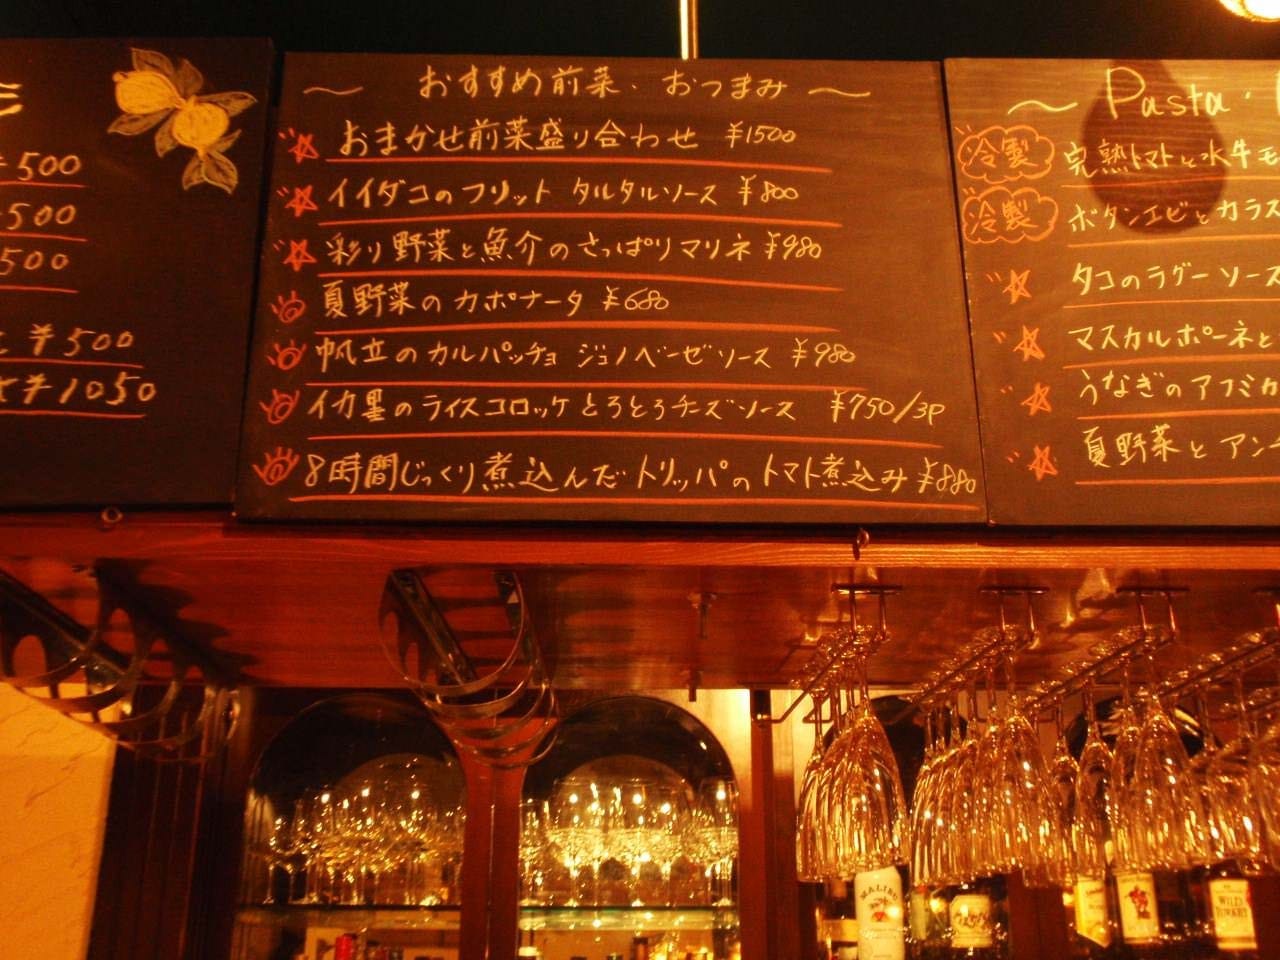 ¥500
500
500
¥500
¥1050
おすすめ前菜・おつまみ
おまかせ前菜盛り合わせ ¥1500
イイダコのフリット タルタルソース ¥800
彩り野菜と魚介のさっぱりマリネ ¥980
夏野菜のカポナータ ¥680
帆立のカルパッチョ ジェノベーゼソース ¥980
イカ墨のライスコロッケ とろとろチーズソース ¥750/3P
8時間じっくり煮込んだトリッパのトマト煮込み ¥880
Pasta・
冷製 完熟トマトと水牛モ
冷製 ボタンエビとカラス
タコのラグーソース
マスカルポーネと
うなぎのアフミカ
夏野菜とアン
MALIBU
WILD TURKEY